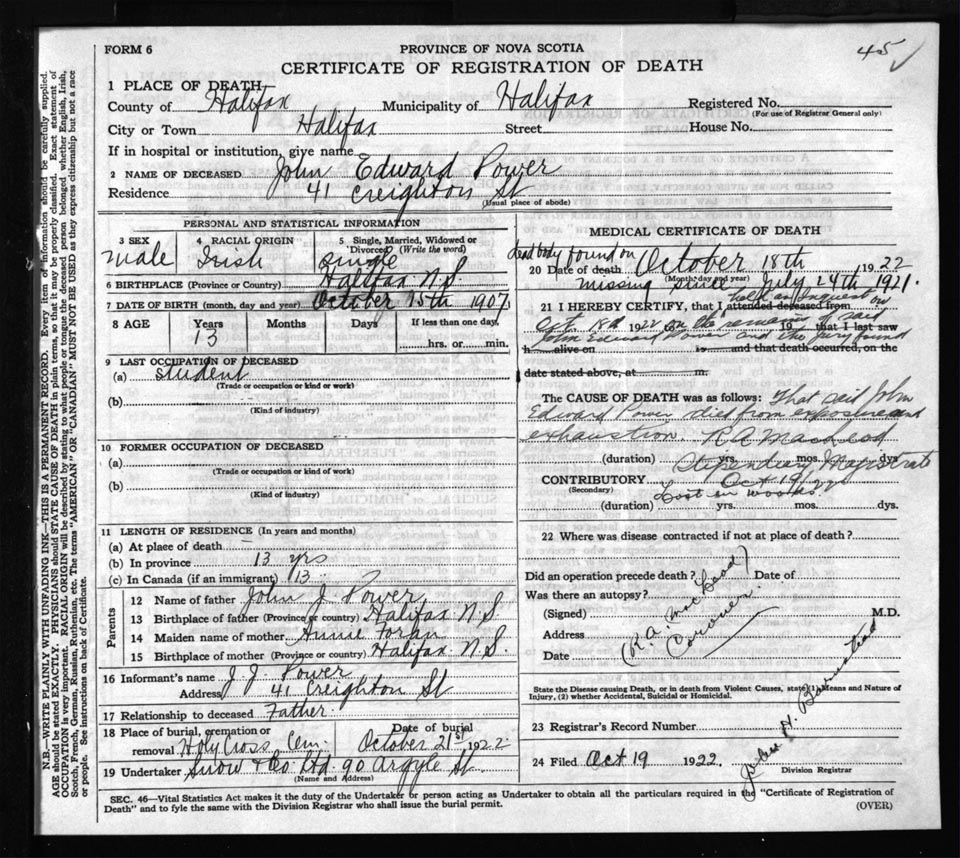 FORM 6
PROVINCE OF NOVA SCOTIA
45 ✓
CERTIFICATE OF REGISTRATION OF DEATH
1 PLACE OF DEATH
County of Halifax Municipality of Halifax Registered No.
(For use of Registrar General only)
City or Town Halifax Street House No.
If in hospital or institution, give name
2 NAME OF DECEASED John Edward Power
Residence 41 Creighton St
(Usual place of abode)
PERSONAL AND STATISTICAL INFORMATION
3 SEX 4 RACIAL ORIGIN 5 Single, Married, Widowed or Divorced (Write the word)
male Irish single
6 BIRTHPLACE (Province or Country) Halifax N.S.
7 DATE OF BIRTH (month, day and year) October 15th 1907
8 AGE Years Months Days If less than one day,
13 hrs. or min.
9 LAST OCCUPATION OF DECEASED
(a) student
(Trade or occupation or kind or work)
(b)
(Kind of industry)
10 FORMER OCCUPATION OF DECEASED
(a)
(Trade or occupation or kind of work)
(b)
(Kind of industry)
11 LENGTH OF RESIDENCE (In years and months)
(a) At place of death
(b) In province 13 yrs
(c) In Canada (if an immigrant) 13
Parents
12 Name of father John J Power
13 Birthplace of father (Province or country) Halifax N.S
14 Maiden name of mother Annie Foran
15 Birthplace of mother (Province or country) Halifax N.S.
16 Informant's name J. J. Power
Address 41 Creighton St
17 Relationship to deceased Father.
18 Place of burial, cremation or removal Holy Cross Cem. Date of burial October 21st 1922
19 Undertaker Snow & Co Ltd 90 Argyle St.
(Name and Address)
MEDICAL CERTIFICATE OF DEATH
dead body found on
20 Date of death October 18th 1922
(Month, day and year)
missing since July 24th 1921.
21 I HEREBY CERTIFY, that I attended deceased from
held an Inquest on
Oct 18th 1922 to on the remains of said 19 that I last saw
John Edward Power and the jury found
h alive on 19 and that death occurred, on the
date stated above, at m.
The CAUSE OF DEATH was as follows: That said John
Edward Power died from exposure and
exhaustion. R A MacLeod
(duration) yrs. mos. dys.
Stipendiary Magistrate
CONTRIBUTORY Oct 19/22
(Secondary) Lost in woods.
(duration) yrs. mos. dys.
22 Where was disease contracted if not at place of death?
Did an operation precede death? Date of
Was there an autopsy?
(Signed) M.D.
Address
Date
(R.A. MacLeod)
Coroner.
State the Disease causing Death, or in death from Violent Causes, state (1) Means and Nature of Injury, (2) whether Accidental, Suicidal or Homicidal.
23 Registrar's Record Number
24 Filed Oct 19 1922.
John H. Barnstead
Division Registrar
SEC. 46—Vital Statistics Act makes it the duty of the Undertaker or person acting as Undertaker to obtain all the particulars required in the "Certificate of Registration of
Death" and to fyle the same with the Division Registrar who shall issue the burial permit.
(OVER)
N.B.—WRITE PLAINLY WITH UNFADING INK—THIS IS A PERMANENT RECORD. Every item of information should be carefully supplied.
AGE should be stated EXACTLY. PHYSICIANS should STATE CAUSE OF DEATH in plain terms, so that it may be properly classified. Exact statement of
OCCUPATION is very important. RACIAL ORIGIN will be described by stating to what people or tongue the deceased person belonged, whether English, Irish,
Scotch, French, German, Russian, Ruthenian, etc. The terms "AMERICAN" OR "CANADIAN" MUST NOT BE USED as they express citizenship but not a race
or people. See instructions on back of Certificate.